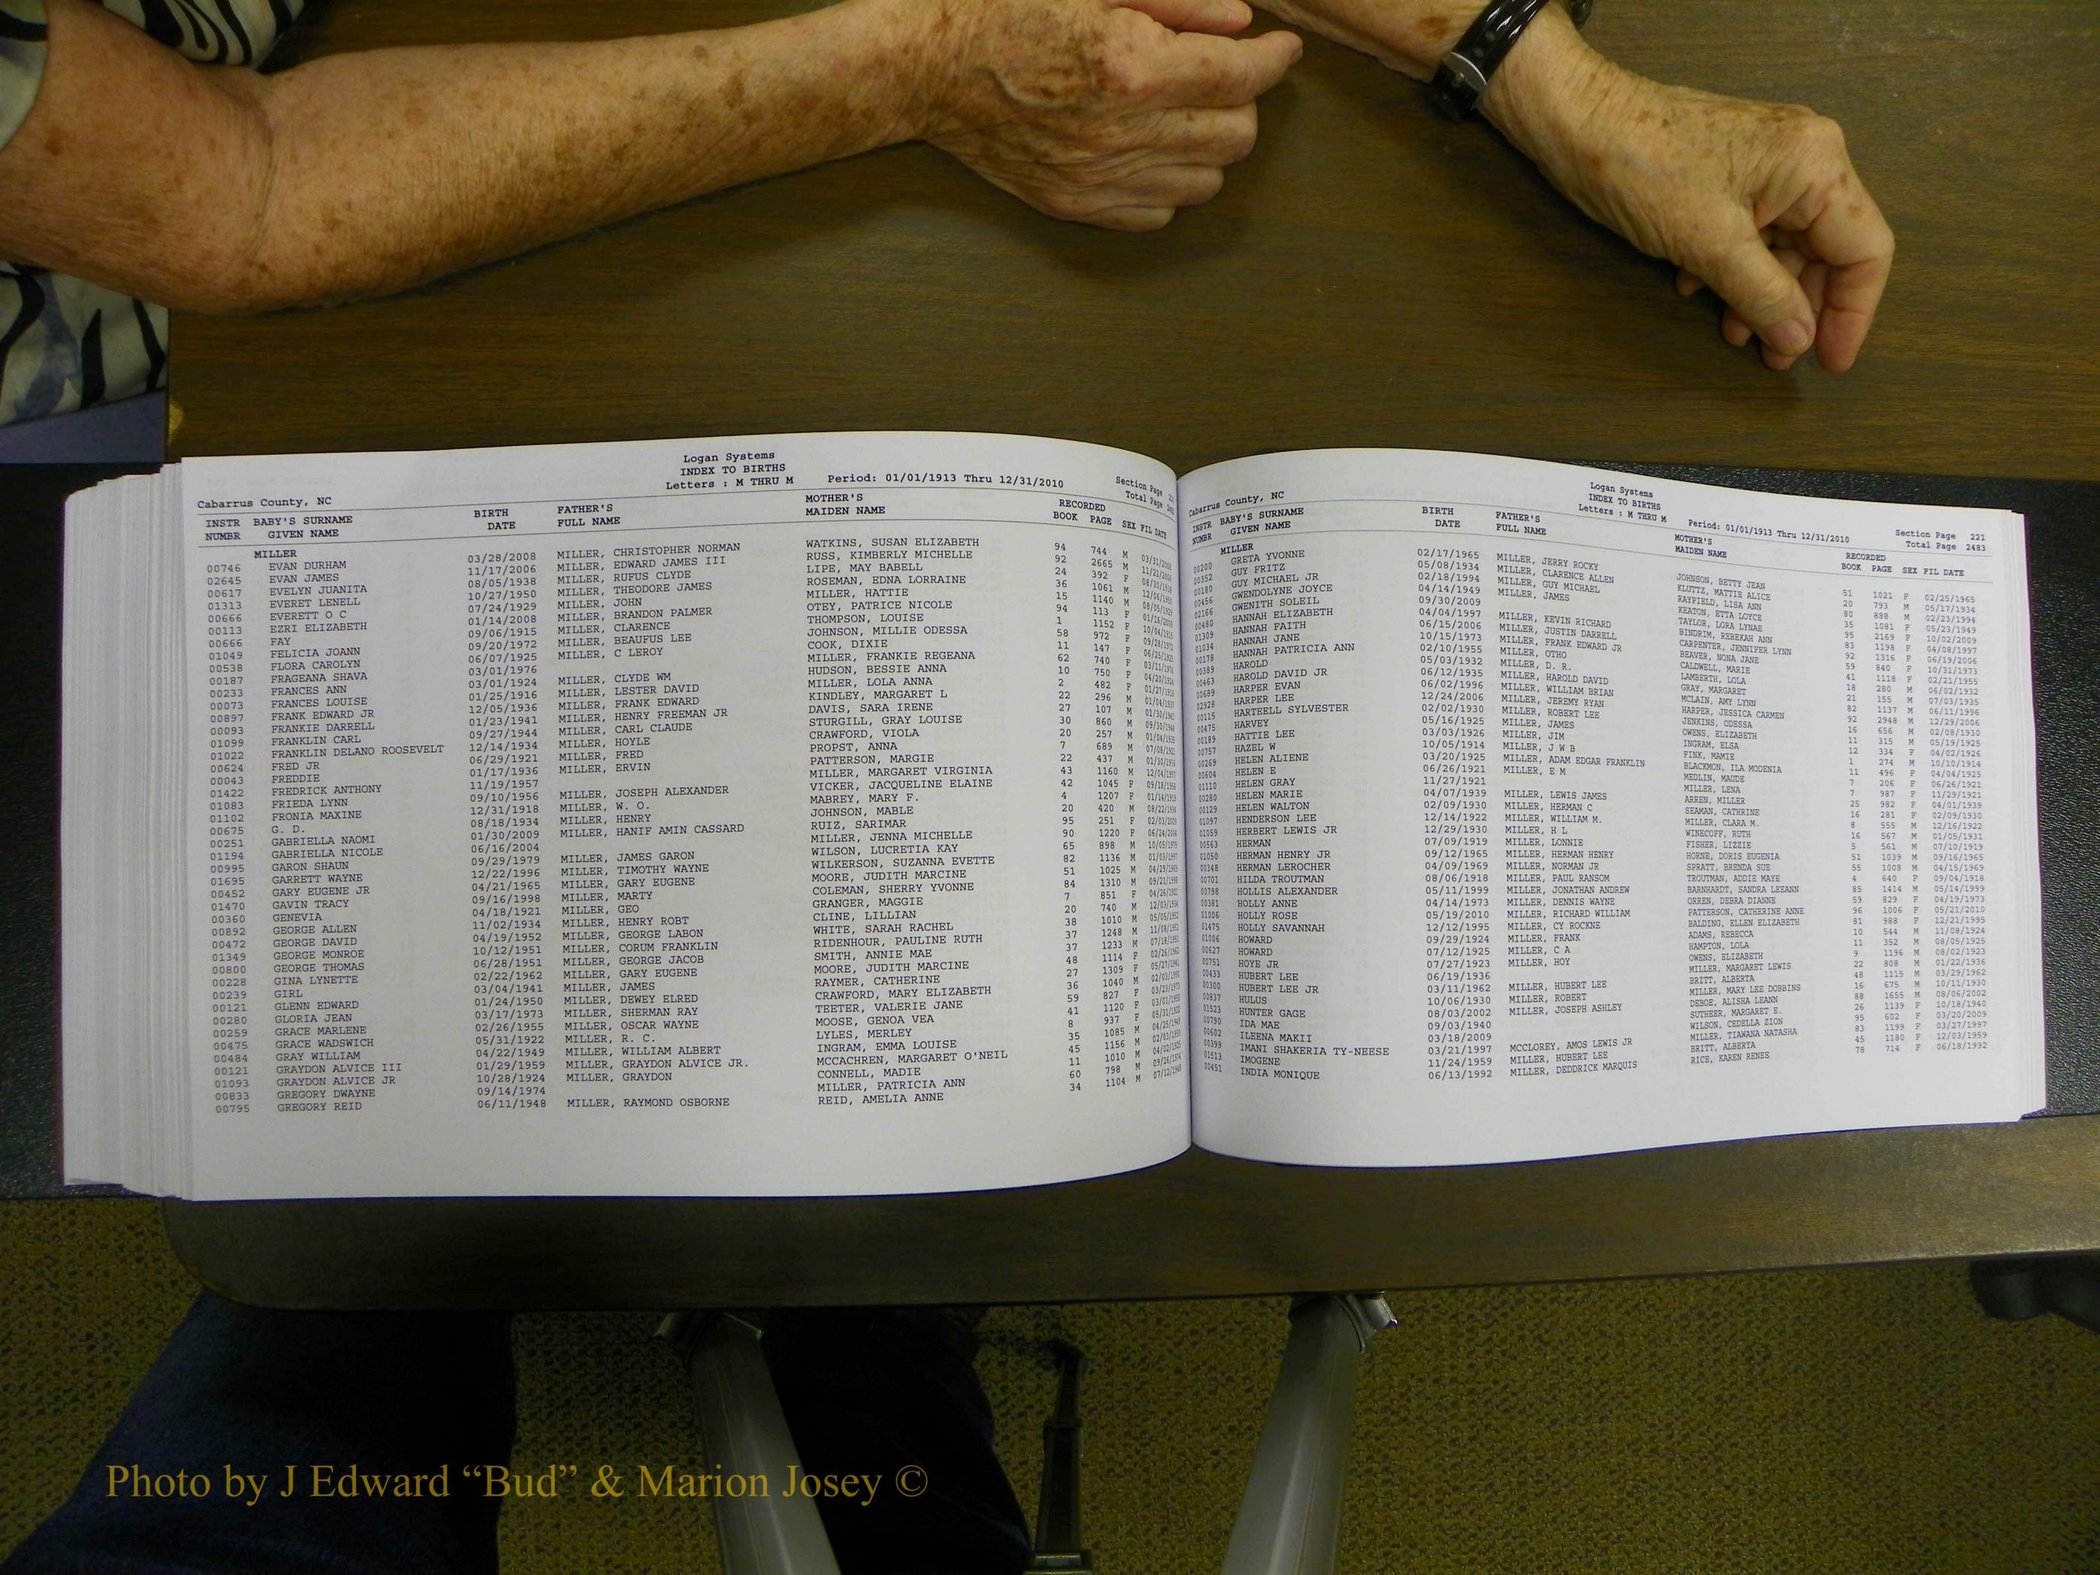 Logan Systems
INDEX TO BIRTHS
Letters : M THRU M Period: 01/01/1913 Thru 12/31/2010
Cabarrus County, NC Section Page
Total Page
INSTR BABY'S SURNAME BIRTH FATHER'S MOTHER'S RECORDED
NUMBR GIVEN NAME DATE FULL NAME MAIDEN NAME BOOK PAGE SEX FIL DATE
MILLER
00746 EVAN DURHAM 03/28/2008 MILLER, CHRISTOPHER NORMAN WATKINS, SUSAN ELIZABETH 94 744 M
02645 EVAN JAMES 11/17/2006 MILLER, EDWARD JAMES III RUSS, KIMBERLY MICHELLE 92 2665 M
00617 EVELYN JUANITA 08/05/1938 MILLER, RUFUS CLYDE LIPE, MAY BABELL 24 392 F
01313 EVERET LENELL 10/27/1950 MILLER, THEODORE JAMES ROSEMAN, EDNA LORRAINE 36 1061 M
00666 EVERETT O C 07/24/1929 MILLER, JOHN MILLER, HATTIE 15 1140 M
00113 EZRI ELIZABETH 01/14/2008 MILLER, BRANDON PALMER OTEY, PATRICE NICOLE 94 113 F
00666 FAY 09/06/1915 MILLER, CLARENCE THOMPSON, LOUISE 1 1152 F
01049 FELICIA JOANN 09/20/1972 MILLER, BEAUFUS LEE JOHNSON, MILLIE ODESSA 58 972 F
00538 FLORA CAROLYN 06/07/1925 MILLER, C LEROY COOK, DIXIE 11 147 F
00187 FRAGEANA SHAVA 03/01/1976 MILLER, FRANKIE REGEANA 62 740 F
00233 FRANCES ANN 03/01/1924 MILLER, CLYDE WM HUDSON, BESSIE ANNA 10 750 F
00073 FRANCES LOUISE 01/25/1916 MILLER, LESTER DAVID MILLER, LOLA ANNA 2 482 F
00897 FRANK EDWARD JR 12/05/1936 MILLER, FRANK EDWARD KINDLEY, MARGARET L 22 296 M
00093 FRANKIE DARRELL 01/23/1941 MILLER, HENRY FREEMAN JR DAVIS, SARA IRENE 27 107 M
01099 FRANKLIN CARL 09/27/1944 MILLER, CARL CLAUDE STURGILL, GRAY LOUISE 30 860 M
01022 FRANKLIN DELANO ROOSEVELT 12/14/1934 MILLER, HOYLE CRAWFORD, VIOLA 20 257 M
00624 FRED JR 06/29/1921 MILLER, FRED PROPST, ANNA 7 689 M
00043 FREDDIE 01/17/1936 MILLER, ERVIN PATTERSON, MARGIE 22 437 M
01422 FREDRICK ANTHONY 11/19/1957 MILLER, MARGARET VIRGINIA 43 1160 M
01083 FRIEDA LYNN 09/10/1956 MILLER, JOSEPH ALEXANDER VICKER, JACQUELINE ELAINE 42 1045 F
01102 FRONIA MAXINE 12/31/1918 MILLER, W. O. MABREY, MARY F. 4 1207 F
00675 G. D. 08/18/1934 MILLER, HENRY JOHNSON, MABLE 20 420 M
00251 GABRIELLA NAOMI 01/30/2009 MILLER, HANIF AMIN CASSARD RUIZ, SARIMAR 95 251 F
01194 GABRIELLA NICOLE 06/16/2004 MILLER, JENNA MICHELLE 90 1220 F
00995 GARON SHAUN 09/29/1979 MILLER, JAMES GARON WILSON, LUCRETIA KAY 65 898 M
01695 GARRETT WAYNE 12/22/1996 MILLER, TIMOTHY WAYNE WILKERSON, SUZANNA EVETTE 82 1136 M
00452 GARY EUGENE JR 04/21/1965 MILLER, GARY EUGENE MOORE, JUDITH MARCINE 51 1025 M
01470 GAVIN TRACY 09/16/1998 MILLER, MARTY COLEMAN, SHERRY YVONNE 84 1310 M
00360 GENEVIA 04/18/1921 MILLER, GEO GRANGER, MAGGIE 7 851 F
00892 GEORGE ALLEN 11/02/1934 MILLER, HENRY ROBT CLINE, LILLIAN 20 740 M
00472 GEORGE DAVID 04/19/1952 MILLER, GEORGE LABON WHITE, SARAH RACHEL 38 1010 M
01349 GEORGE MONROE 10/12/1951 MILLER, CORUM FRANKLIN RIDENHOUR, PAULINE RUTH 37 1248 M
00800 GEORGE THOMAS 06/28/1951 MILLER, GEORGE JACOB SMITH, ANNIE MAE 37 1233 M
00228 GINA LYNETTE 02/22/1962 MILLER, GARY EUGENE MOORE, JUDITH MARCINE 48 1114 F
00239 GIRL 03/04/1941 MILLER, JAMES RAYMER, CATHERINE 27 1309 F
00121 GLENN EDWARD 01/24/1950 MILLER, DEWEY ELRED CRAWFORD, MARY ELIZABETH 36 1040 M
00280 GLORIA JEAN 03/17/1973 MILLER, SHERMAN RAY TEETER, VALERIE JANE 59 827 F
00259 GRACE MARLENE 02/26/1955 MILLER, OSCAR WAYNE MOOSE, GENOA VEA 41 1120 F
00475 GRACE WADSWICH 05/31/1922 MILLER, R. C. LYLES, MERLEY 8 937 F
00484 GRAY WILLIAM 04/22/1949 MILLER, WILLIAM ALBERT INGRAM, EMMA LOUISE 35 1085 M
00121 GRAYDON ALVICE III 01/29/1959 MILLER, GRAYDON ALVICE JR. MCCACHREN, MARGARET O'NEIL 45 1156 M
01093 GRAYDON ALVICE JR 10/28/1924 MILLER, GRAYDON CONNELL, MADIE 11 1010 M
00833 GREGORY DWAYNE 09/14/1974 MILLER, PATRICIA ANN 60 798 M
00795 GREGORY REID 06/11/1948 MILLER, RAYMOND OSBORNE REID, AMELIA ANNE 34 1104 M
Logan Systems
INDEX TO BIRTHS
Letters : M THRU M Period: 01/01/1913 Thru 12/31/2010
Cabarrus County, NC Section Page 221
Total Page 2483
INSTR BABY'S SURNAME BIRTH FATHER'S MOTHER'S RECORDED
NUMBR GIVEN NAME DATE FULL NAME MAIDEN NAME BOOK PAGE SEX FIL DATE
MILLER
00200 GRETA YVONNE 02/17/1965 MILLER, JERRY ROCKY JOHNSON, BETTY JEAN 51 1021 F 02/25/1965
00352 GUY FRITZ 05/08/1934 MILLER, CLARENCE ALLEN KLUTTZ, MATTIE ALICE 20 793 M 05/17/1934
00180 GUY MICHAEL JR 02/18/1994 MILLER, GUY MICHAEL RAYFIELD, LISA ANN 80 888 M 02/23/1994
00456 GWENDOLYNE JOYCE 04/14/1949 MILLER, JAMES KEATON, ETTA LOYCE 35 1081 F 05/23/1949
02166 GWENITH SOLEIL 09/30/2009 TAYLOR, LORA LYNAE 95 2169 F 10/02/2009
00480 HANNAH ELIZABETH 04/04/1997 MILLER, KEVIN RICHARD BINDRIM, REBEKAH ANN 83 1198 F 04/08/1997
01309 HANNAH FAITH 06/15/2006 MILLER, JUSTIN DARRELL CARPENTER, JENNIFER LYNN 92 1316 F 06/19/2006
01034 HANNAH JANE 10/15/1973 MILLER, FRANK EDWARD JR BEAVER, NONA JANE 59 840 F 10/31/1973
00178 HANNAH PATRICIA ANN 02/10/1955 MILLER, OTHO CALDWELL, MARIE 41 1118 F 02/21/1955
00389 HAROLD 05/03/1932 MILLER, D. R. LAMBERTH, LOLA 18 280 M 06/02/1932
00463 HAROLD DAVID JR 06/12/1935 MILLER, HAROLD DAVID GRAY, MARGARET 21 155 M 07/03/1935
00689 HARPER EVAN 06/02/1996 MILLER, WILLIAM BRIAN MCLAIN, AMY LYNN 82 1137 M 06/11/1996
02928 HARPER LEE 12/24/2006 MILLER, JEREMY RYAN HARPER, JESSICA CARMEN 92 2948 M 12/29/2006
00115 HARTEELL SYLVESTER 02/02/1930 MILLER, ROBERT LEE JENKINS, ODESSA 16 656 M 02/08/1930
00475 HARVEY 05/16/1925 MILLER, JAMES OWENS, ELIZABETH 11 315 M 05/19/1925
00189 HATTIE LEE 03/03/1926 MILLER, JIM INGRAM, ELSA 12 334 F 04/02/1926
00757 HAZEL W 10/05/1914 MILLER, J W B FINK, MAMIE 1 274 M 10/10/1914
00269 HELEN ALIENE 03/20/1925 MILLER, ADAM EDGAR FRANKLIN BLACKMON, ILA MODENIA 11 496 F 04/04/1925
00604 HELEN E 06/26/1921 MILLER, E M MEDLIN, MAUDE 7 206 F 06/26/1921
01110 HELEN GRAY 11/27/1921 MILLER, LENA 7 987 F 11/29/1921
00280 HELEN MARIE 04/07/1939 MILLER, LEWIS JAMES ARREN, MILLER 25 982 F 04/01/1939
00129 HELEN WALTON 02/09/1930 MILLER, HERMAN C SEAMAN, CATHRINE 16 281 F 02/09/1930
01097 HENDERSON LEE 12/14/1922 MILLER, WILLIAM M. MILLER, CLARA M. 8 555 M 12/16/1922
01059 HERBERT LEWIS JR 12/29/1930 MILLER, H L WINECOFF, RUTH 16 567 M 01/05/1931
00563 HERMAN 07/09/1919 MILLER, LONNIE FISHER, LIZZIE 5 561 M 07/10/1919
01050 HERMAN HENRY JR 09/12/1965 MILLER, HERMAN HENRY HORNE, DORIS EUGENIA 51 1039 M 09/16/1965
00348 HERMAN LEROCHER 04/09/1969 MILLER, NORMAN JR SPRATT, BRENDA SUE 55 1008 M 04/15/1969
00701 HILDA TROUTMAN 08/06/1918 MILLER, PAUL RANSOM TROUTMAN, ADDIE MAYE 4 640 F 09/04/1918
00798 HOLLIS ALEXANDER 05/11/1999 MILLER, JONATHAN ANDREW BARNHARDT, SANDRA LEEANN 85 1414 M 05/14/1999
00381 HOLLY ANNE 04/14/1973 MILLER, DENNIS WAYNE ORREN, DEBRA DIANNE 59 829 F 04/19/1973
01006 HOLLY ROSE 05/19/2010 MILLER, RICHARD WILLIAM PATTERSON, CATHERINE ANNE 96 1006 F 05/21/2010
01475 HOLLY SAVANNAH 12/12/1995 MILLER, CY ROCKNE BALDING, ELLEN ELIZABETH 81 988 F 12/21/1995
01006 HOWARD 09/29/1924 MILLER, FRANK ADAMS, REBECCA 10 544 M 11/08/1924
00627 HOWARD 07/12/1925 MILLER, C A HAMPTON, LOLA 11 352 M 08/05/1925
00751 HOYE JR 07/27/1923 MILLER, HOY OWENS, ELIZABETH 9 1196 M 08/02/1923
00433 HUBERT LEE 06/19/1936 MILLER, MARGARET LEWIS 22 808 M 01/22/1936
00300 HUBERT LEE JR 03/11/1962 MILLER, HUBERT LEE BRITT, ALBERTA 48 1115 M 03/29/1962
00837 HULUS 10/06/1930 MILLER, ROBERT MILLER, MARY LEE DOBBINS 16 675 M 10/11/1930
01523 HUNTER GAGE 08/03/2002 MILLER, JOSEPH ASHLEY DEBOE, ALISHA LEANN 88 1655 M 08/06/2002
00790 IDA MAE 09/03/1940 SUTHEER, MARGARET E. 26 1139 F 10/18/1940
00602 ILEENA MAKII 03/18/2009 WILSON, CEDELLA ZION 95 602 F 03/20/2009
00399 IMANI SHAKERIA TY-NEESE 03/21/1997 MCCLOREY, AMOS LEWIS JR MILLER, TIAWANA NATASHA 83 1199 F 03/27/1997
01513 IMOGENE 11/24/1959 MILLER, HUBERT LEE BRITT, ALBERTA 45 1180 F 12/03/1959
00451 INDIA MONIQUE 06/13/1992 MILLER, DEDDRICK MARQUIS RICE, KAREN RENEE 78 714 F 06/18/1992
Photo by J Edward “Bud” & Marion Josey ©